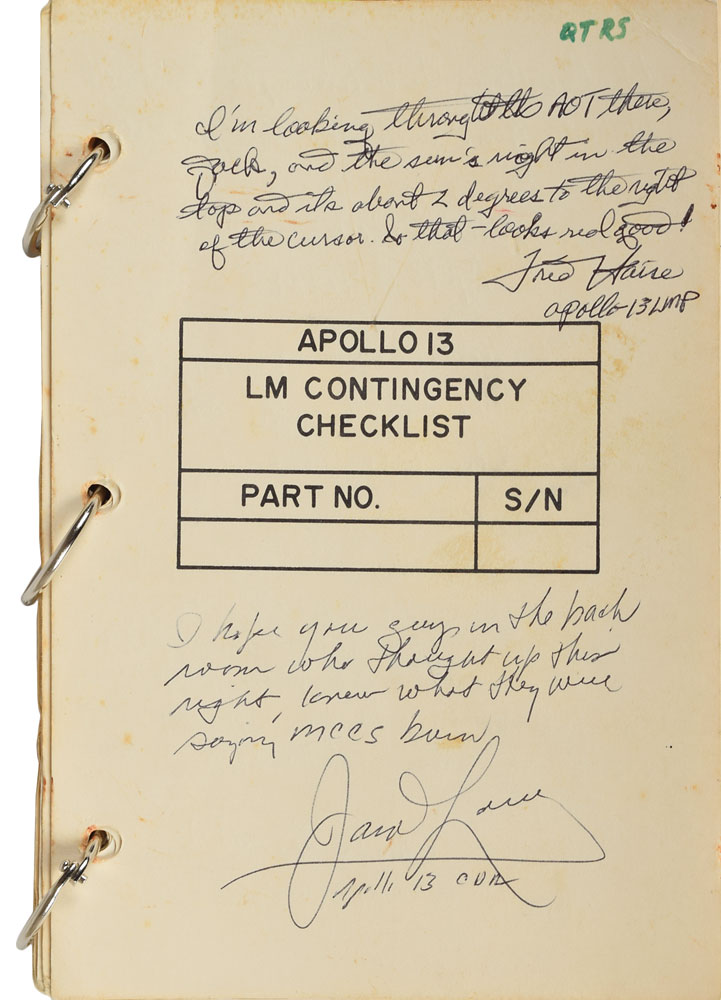 QTRS
I'm looking through the AOT there,
Jack, and the sun's right in the
top and its about 2 degrees to the right
of the cursor. So that looks real good!
Fred Haise
Apollo 13 LMP
APOLLO 13
LM CONTINGENCY
CHECKLIST
PART NO. S/N
I hope you guys in the back
room who thought up this
right, knew what they were
saying, MCC5 burn
James Lovell
Apollo 13 CDR